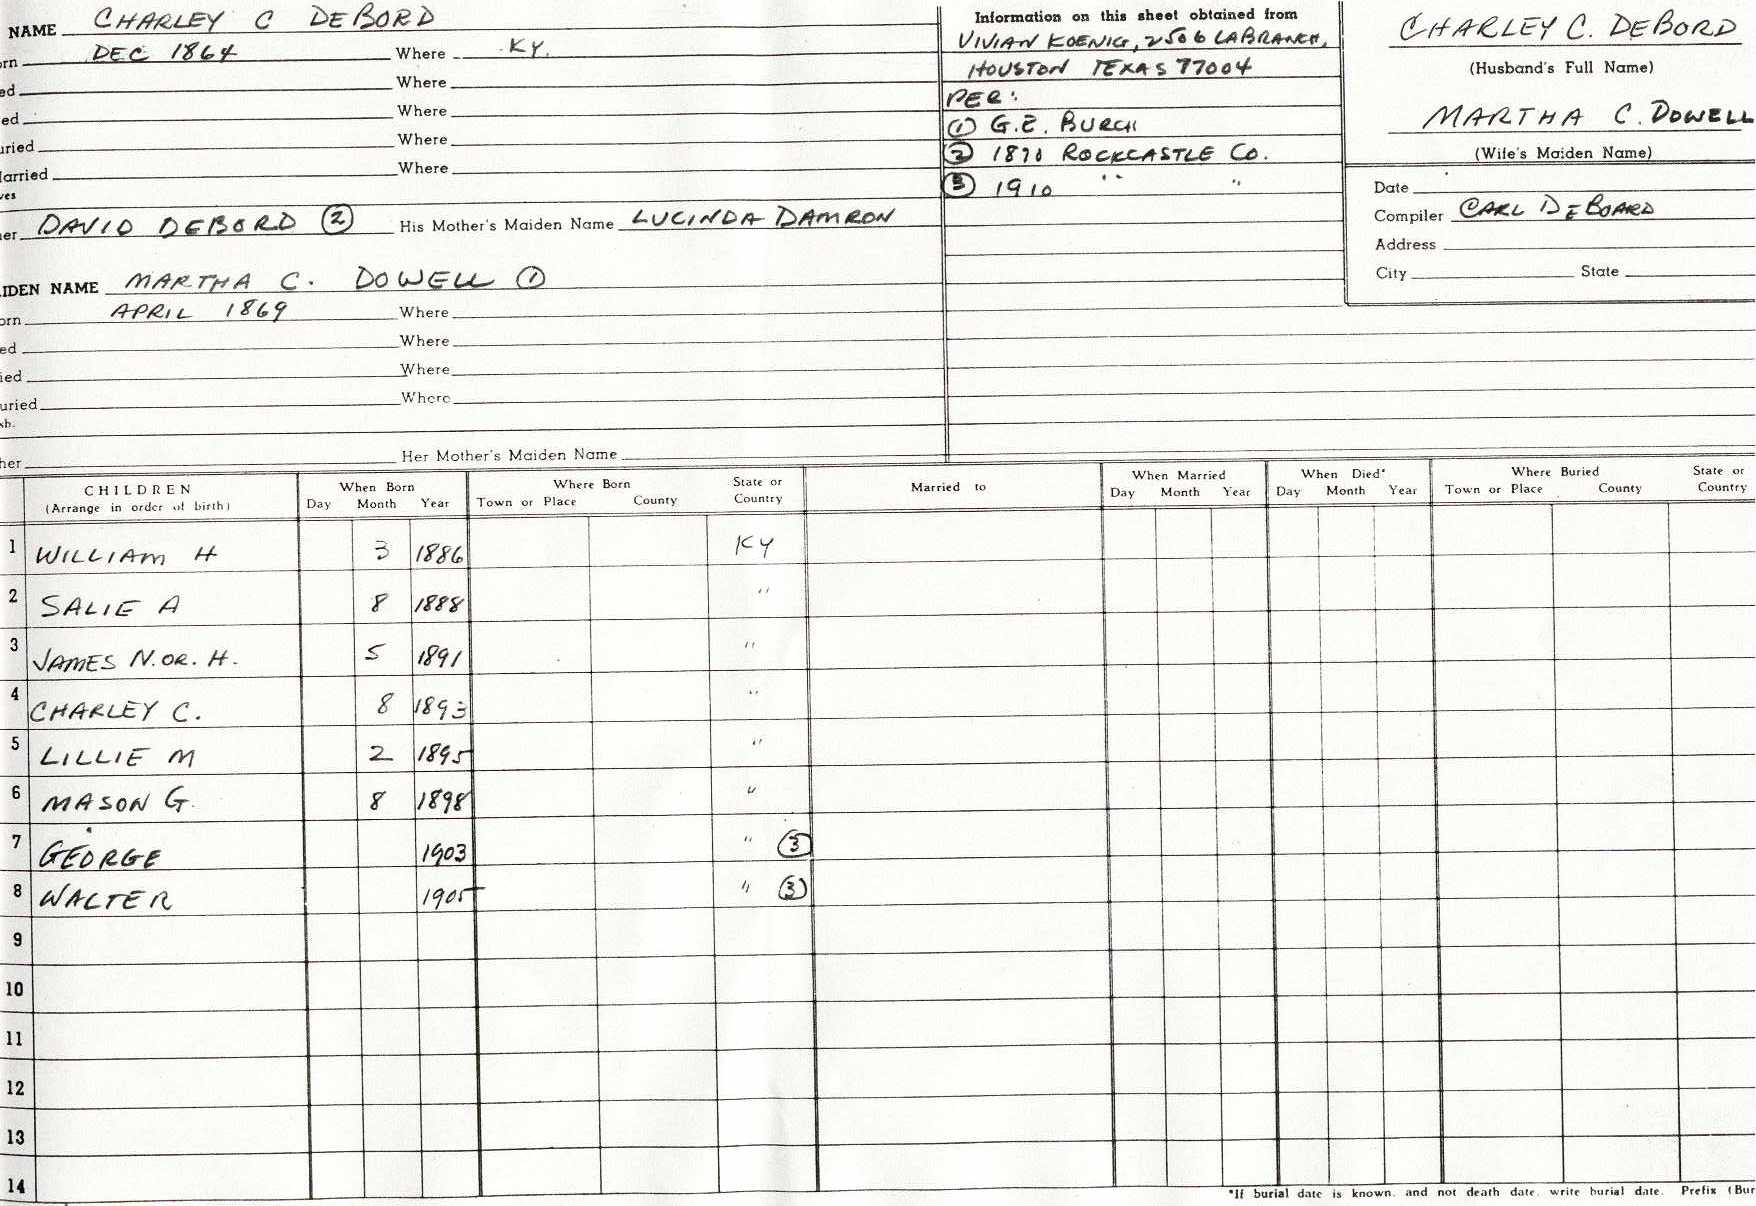 NAME CHARLEY C DEBORD
orn DEC 1864 Where KY.
ed Where
ed Where
uried Where
arried Where
ves
er DAVID DEBORD ② His Mother's Maiden Name LUCINDA DAMRON
IDEN NAME MARTHA C. DOWELL ①
orn APRIL 1869 Where
ed Where
ied Where
uried Where
sb.
her Her Mother's Maiden Name
Information on this sheet obtained from
VIVIAN KOENIG, 2506 LABRANCH,
HOUSTON TEXAS 77004
PER:
① G.E. BURCH
② 1870 ROCKCASTLE CO.
③ 1910 " "
CHARLEY C. DEBORD
(Husband's Full Name)
MARTHA C. DOWELL
(Wife's Maiden Name)
Date
Compiler CARL DEBOARD
Address
City State
CHILDREN When Born Where Born State or Married to When Married When Died* Where Buried State or
(Arrange in order of birth) Day Month Year Town or Place County Country Day Month Year Day Month Year Town or Place County Country
1 WILLIAM H 3 1886 KY
2 SALIE A 8 1888 "
3 JAMES N. OR. H. 5 1891 "
4 CHARLEY C. 8 1893 "
5 LILLIE M 2 1895 "
6 MASON G. 8 1898 "
7 GEORGE 1903 " ③
8 WALTER 1905 " ③
9
10
11
12
13
14
*If burial date is known, and not death date, write burial date. Prefix (Bur